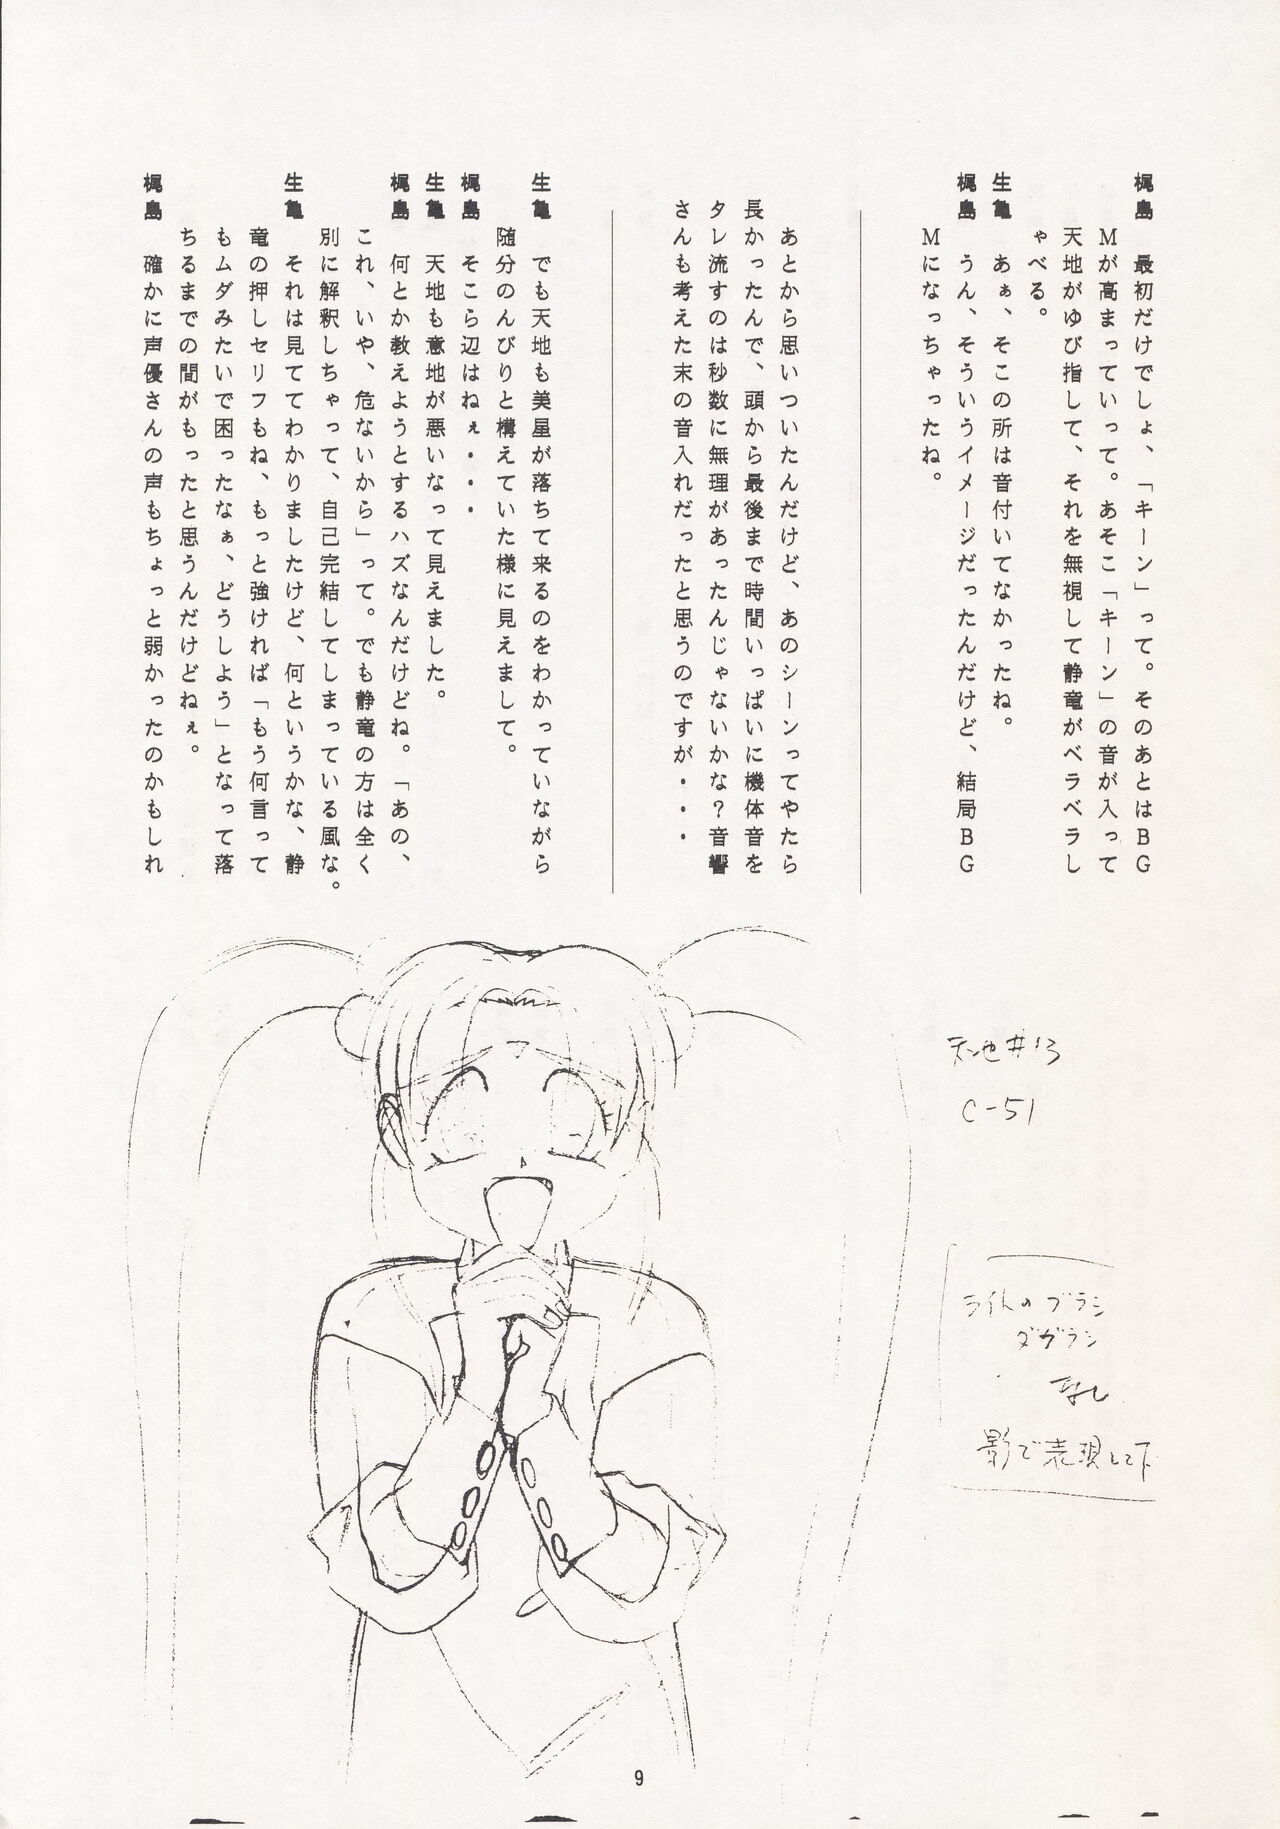 梶島　最初だけでしょ、「キーン」って。そのあとはBG
Mが高まっていって。あそこ「キーン」の音が入って
天地がゆび指して、それを無視して静竜がベラベラし
ゃべる。
生亀　あぁ、そこの所は音付いてなかったね。
梶島　うん、そういうイメージだったんだけど、結局BG
Mになっちゃったね。
あとから思いついたんだけど、あのシーンってやたら
長かったんで、頭から最後まで時間いっぱいに機体音を
タレ流すのは秒数に無理があったんじゃないかな？音響
さんも考えた末の音入れだったと思うのですが・・・
生亀　でも天地も美星が落ちて来るのをわかっていながら
随分のんびりと構えていた様に見えまして。
梶島　そこら辺はねぇ・・・
生亀　天地も意地が悪いなって見えました。
梶島　何とか教えようとするハズなんだけどね。「あの、
これ、いや、危ないから」って。でも静竜の方は全く
別に解釈しちゃって、自己完結してしまっている風な。
生亀　それは見ててわかりましたけど、何というかな、静
竜の押しセリフもね、もっと強ければ「もう何言って
もムダみたいで困ったなぁ、どうしよう」となって落
ちるまでの間がもったと思うんだけどねぇ。
梶島　確かに声優さんの声もちょっと弱かったのかもしれ
天地#13
C-51
ライトのブラシ
ダブラシ
なし
影で表現して下
9